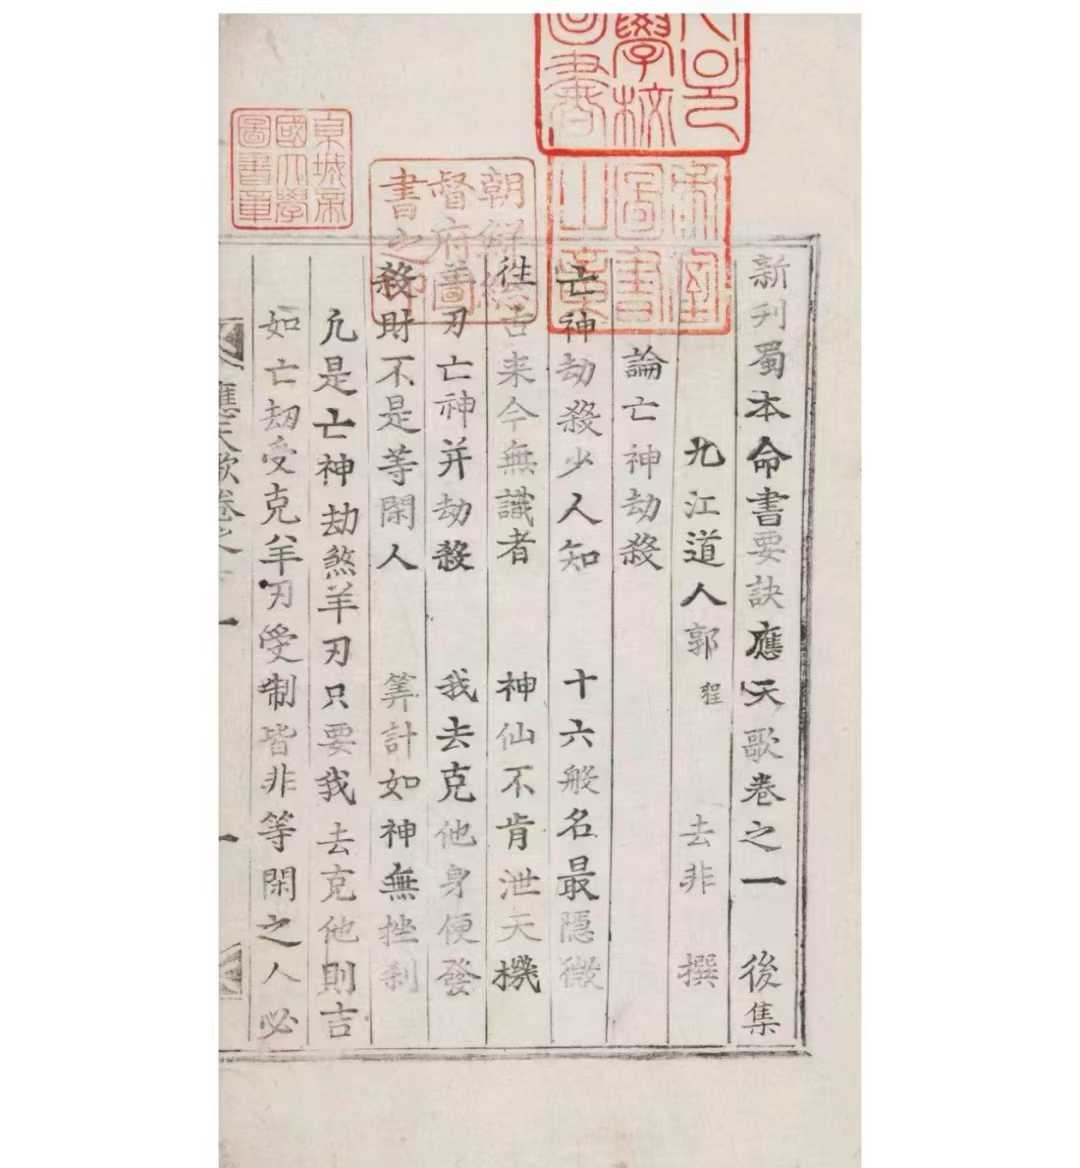 新刊蜀本命書要訣應天歌卷之一 後集
九江道人郭 程 去非 撰
論亡神劫殺
亡神劫殺少人知 十六般名最隱微
徃古来今無識者 神仙不肯泄天機
羊刃亡神并劫殺 我去克他身便發
殺財不是等閑人 筭計如神無挫刹
凢是亡神劫煞羊刃只要我去克他則吉
如亡刼受克羊刃受制皆非等閑之人必
應天歌卷之一
一
京城帝國大學圖書章
朝鮮總督府圖書之印
帝室圖書之章
學校
書